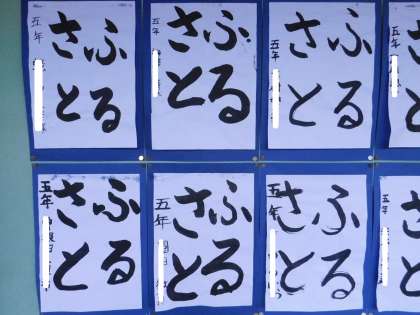 ふる
さと
五年
ふる
さと
五年
ふる
さと
五年
五年
ふる
さと
五年
ふる
さと
五年
ふる
さと
五年
五年